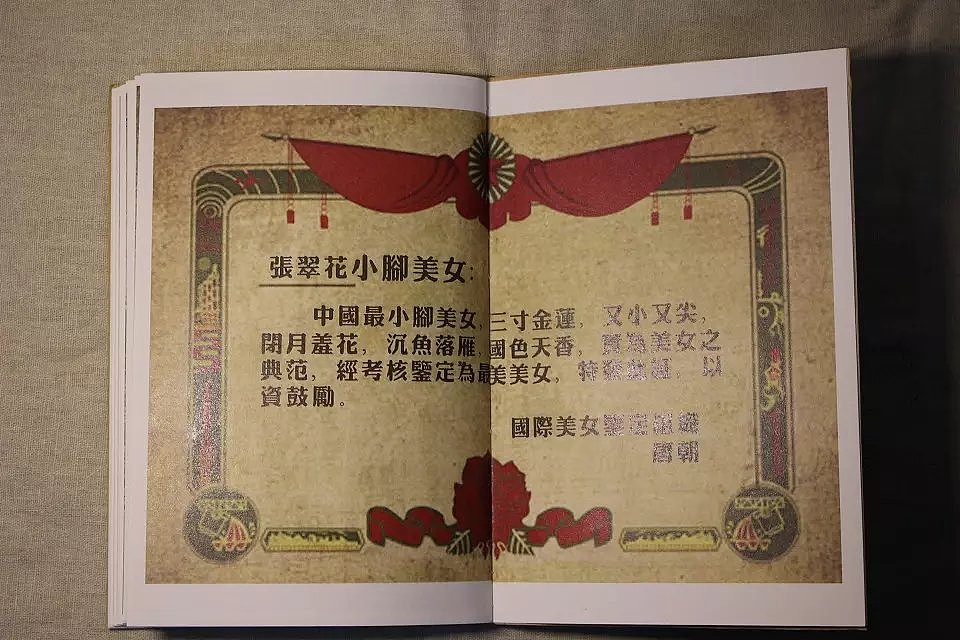 張翠花小腳美女:
中國最小腳美女,三寸金蓮, 又小又尖,
閉月羞花, 沉魚落雁,國色天香, 實為美女之
典范, 經考核鑒定為最美美女, 特發此証, 以
資鼓勵。
國際美女鑒定組織
唐朝